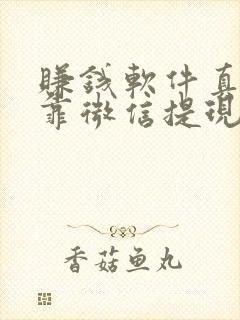 赚钱软件真
靠微信提现
香菇鱼丸